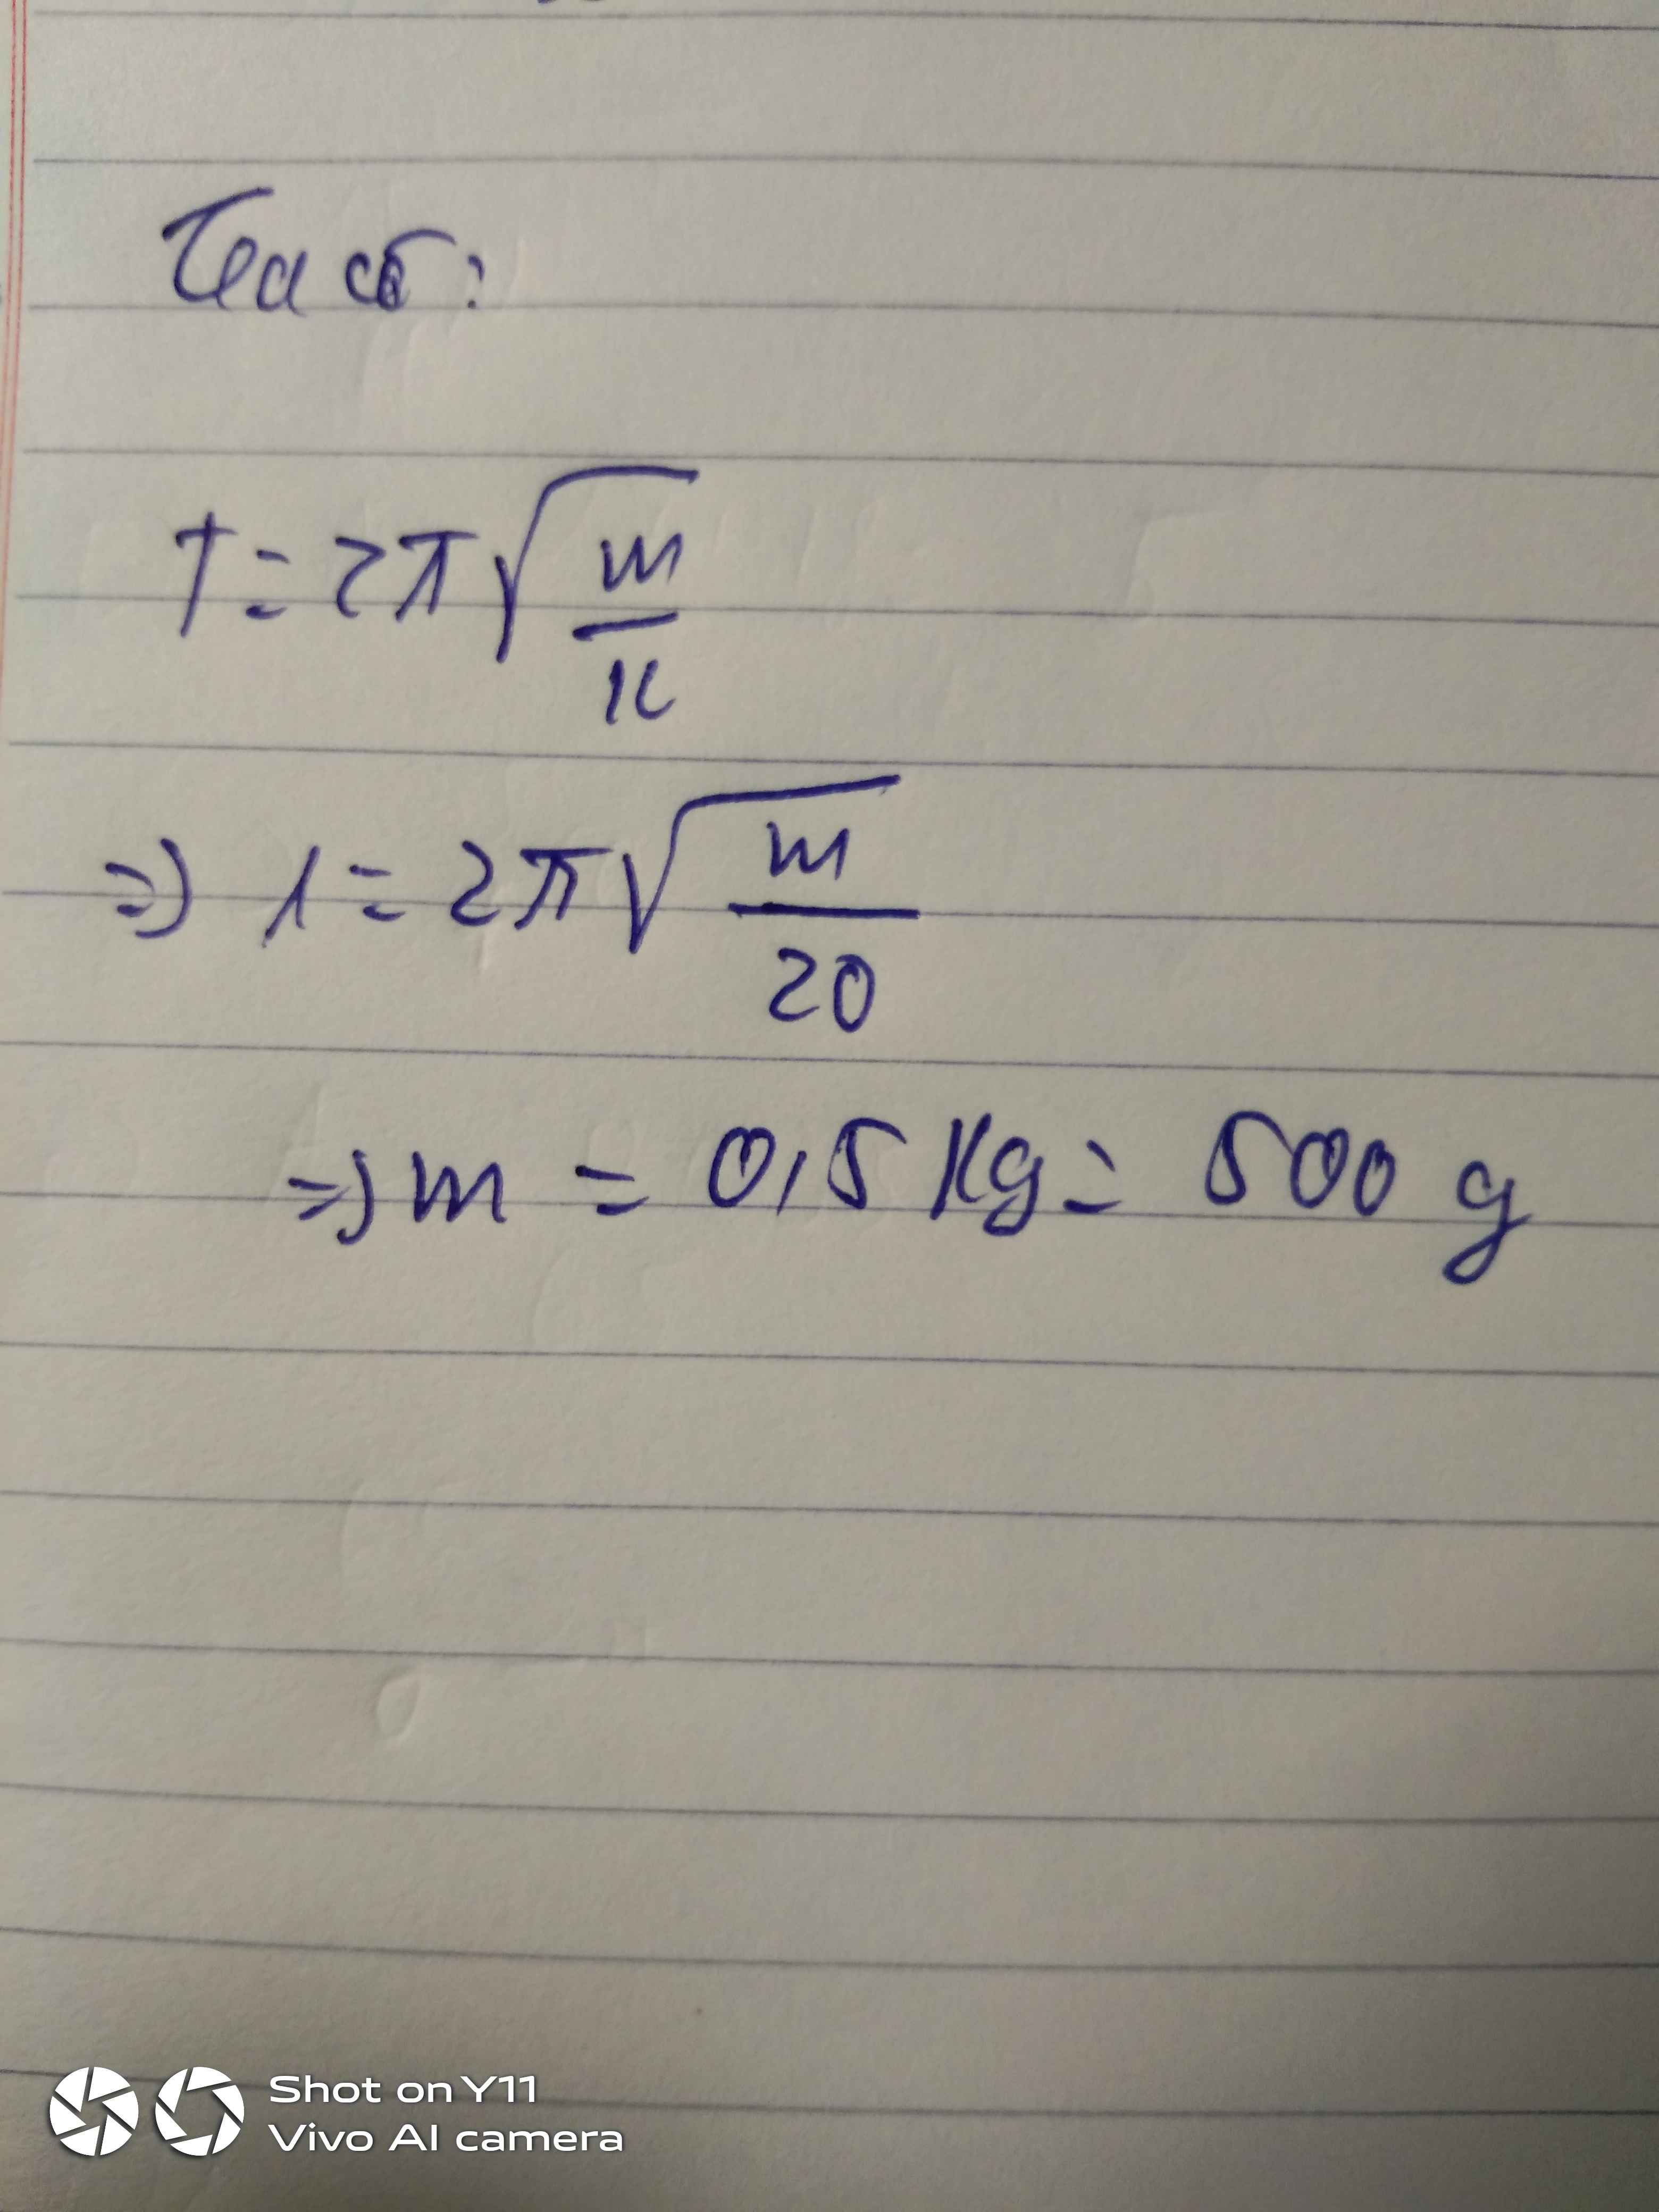 Ta có:
T = 2π√(m/k)
=> 1 = 2π√(m/20)
=> m = 0,5 Kg = 500 g
Shot on Y11
Vivo AI camera